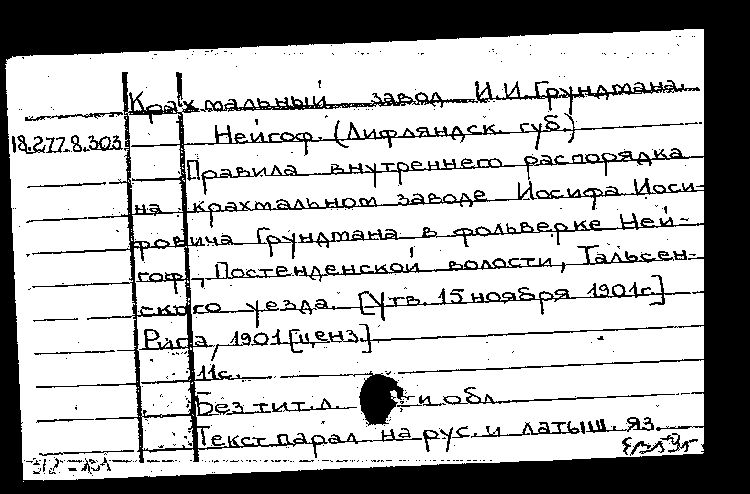 Крахмальный завод И.И. Грундмана.
18.277.8.303 Нейгоф. (Лифляндск. губ.)
Правила внутреннего распорядка
на крахмальном заводе Иосифа Иоси-
фовича Грундмана в фольверке Ней-
гоф, Постенденской волости, Тальсен-
ского уезда. [Утв. 15 ноября 1901г.]
Рига, 1901 [ценз.]
11с.
Без тит. л. и обл.
Текст парал. на рус. и латыш. яз.